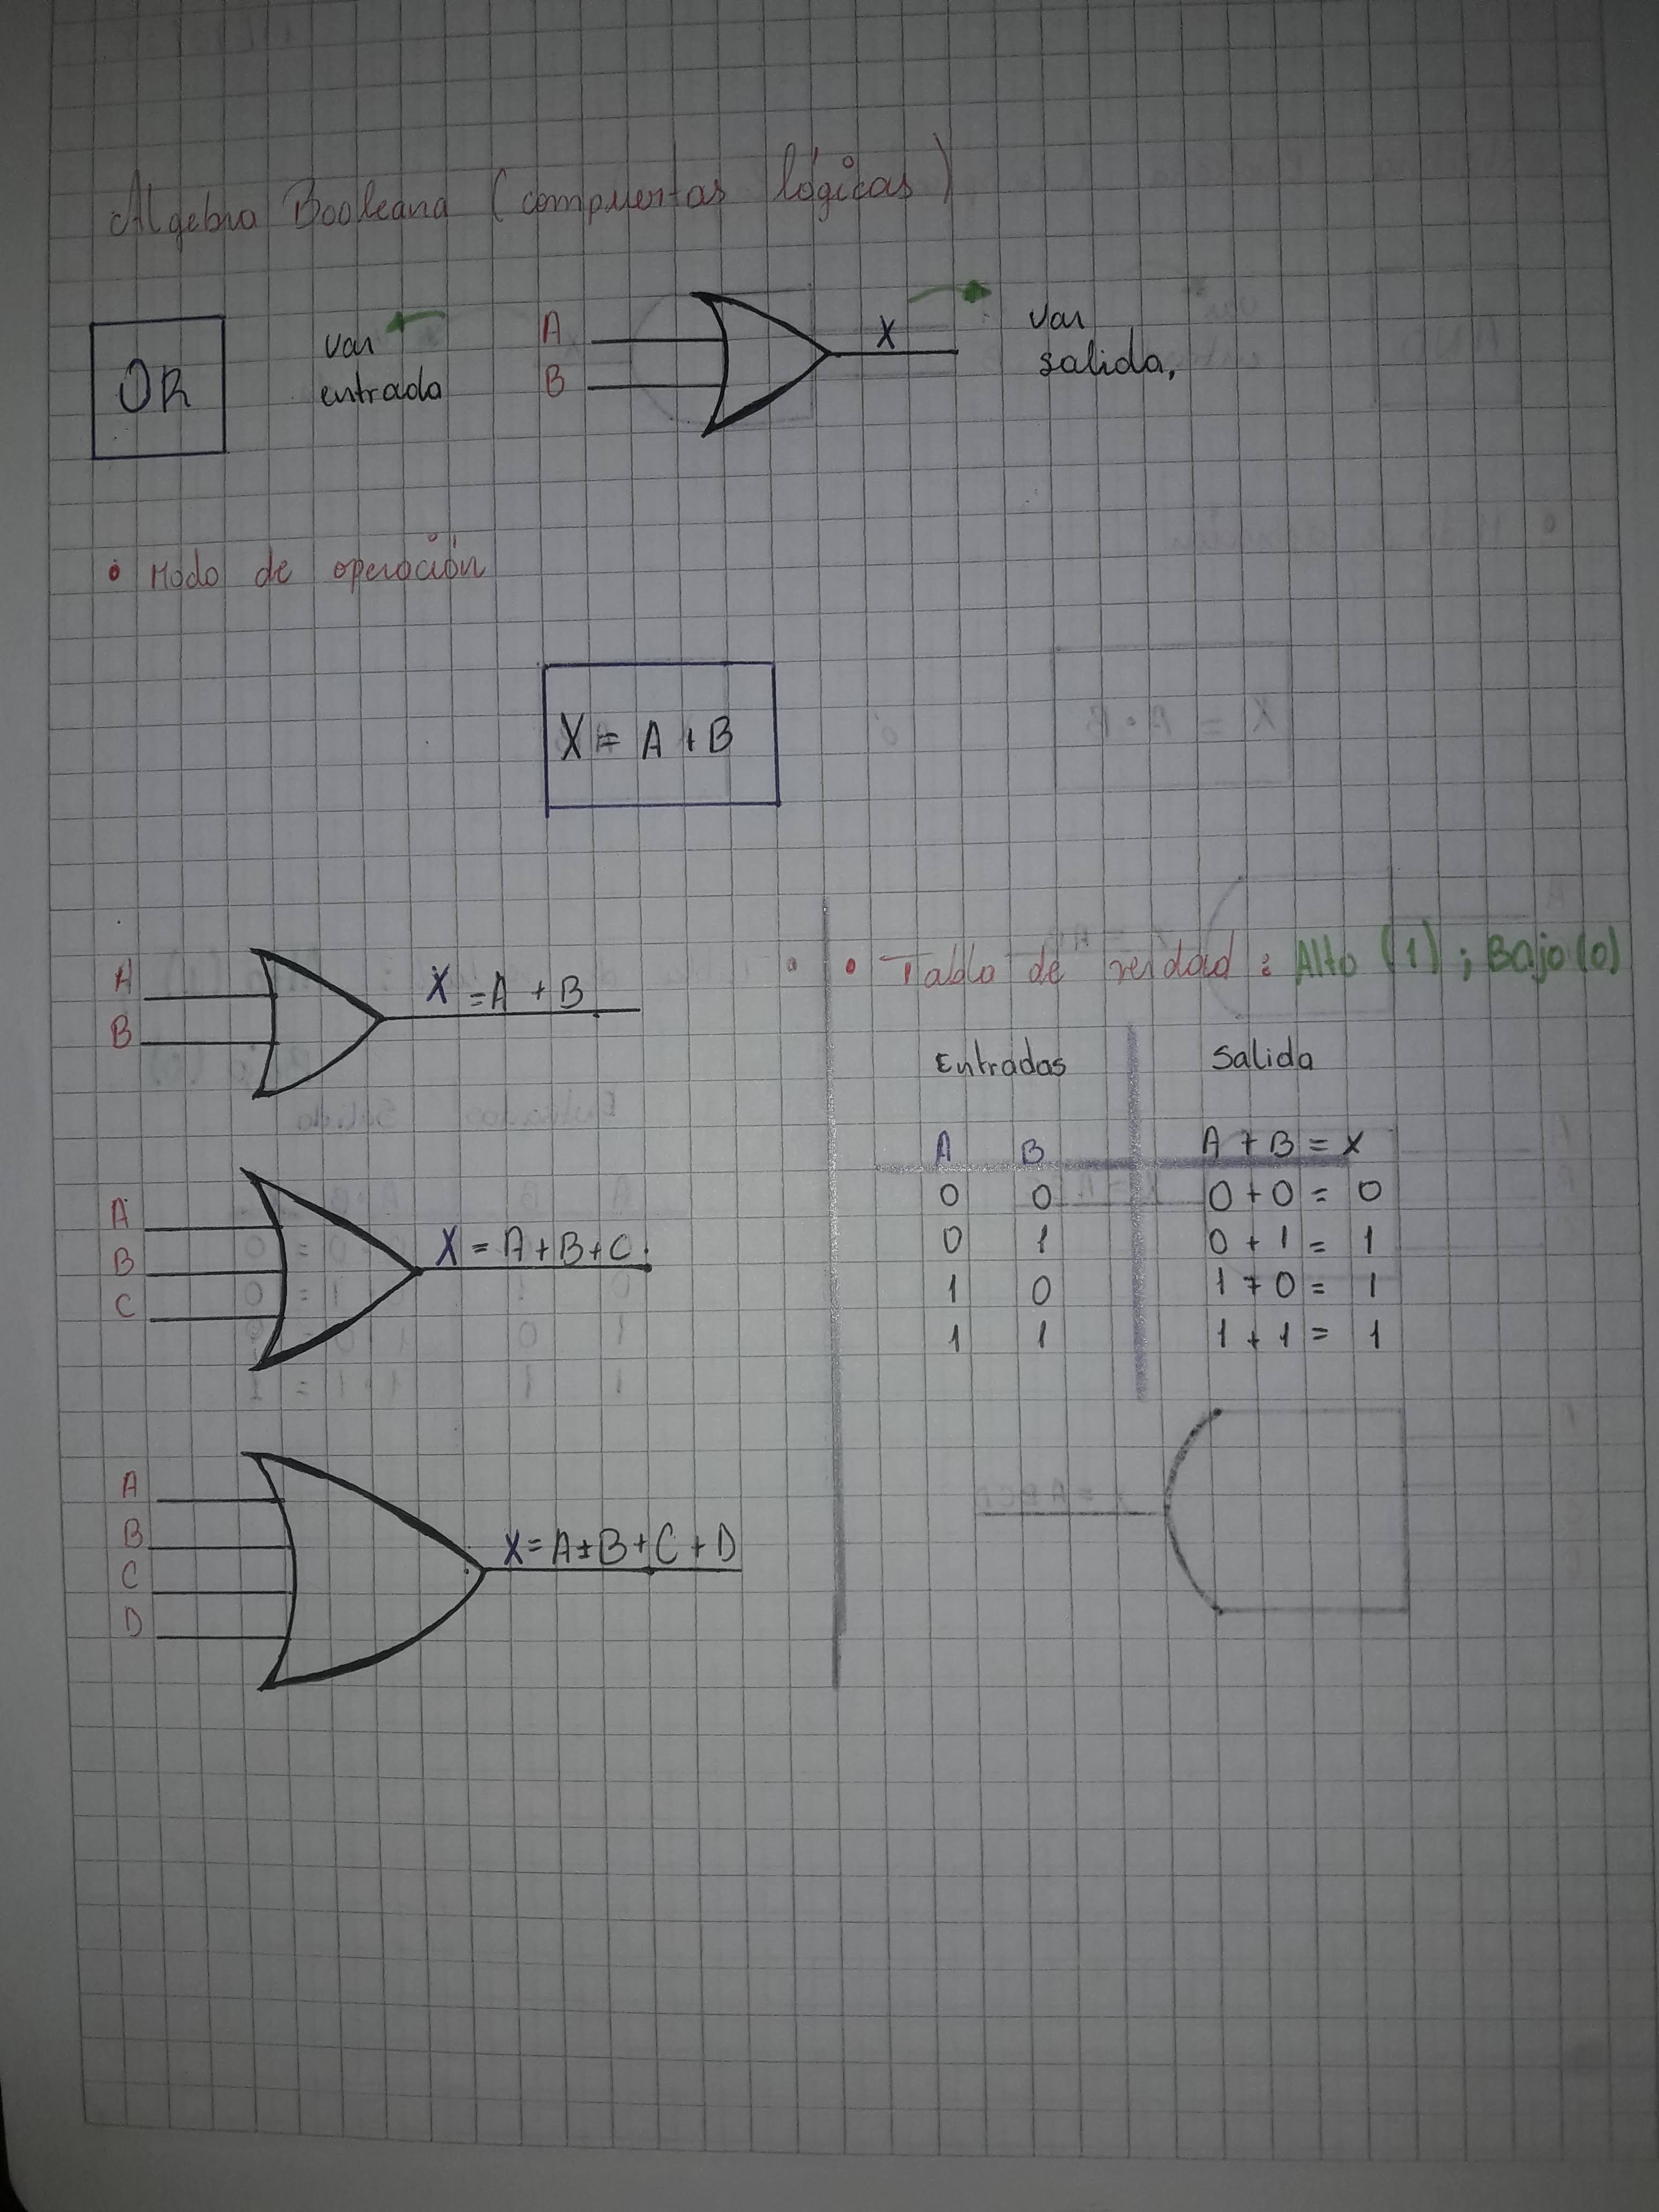 Algebra Booleana (compuertas lógicas)
OR
var
entrada
A
B
X
var
salida,
• Modo de operación
X = A + B
A
B
X = A + B
A
B
C
X = A+B+C.
A
B
C
D
X = A+B+C+D
• Tabla de verdad : Alto (1) ; Bajo (0)
Entradas Salida
A B A + B = X
0 0 0 + 0 = 0
0 1 0 + 1 = 1
1 0 1 + 0 = 1
1 1 1 + 1 = 1